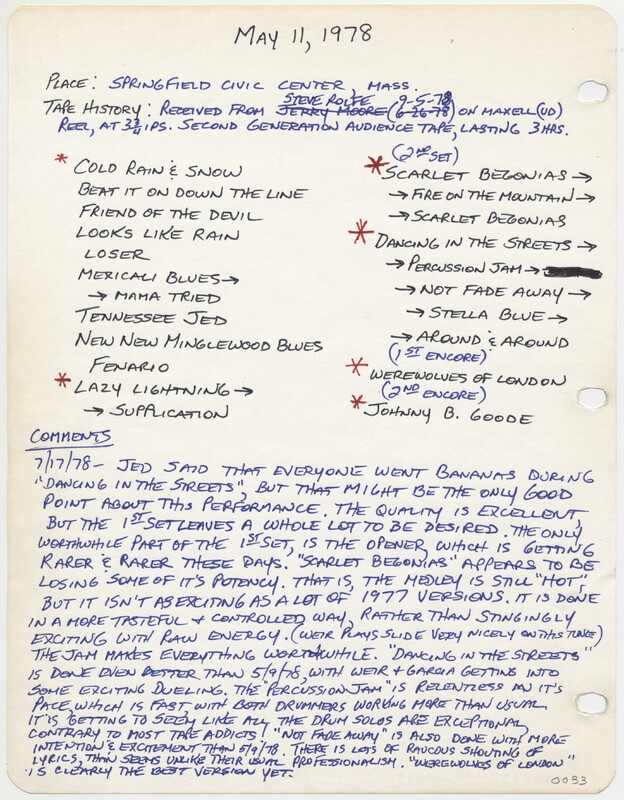 MAY 11, 1978
PLACE: SPRINGFIELD CIVIC CENTER, MASS.
STEVE ROLFE 9-5-78
TAPE HISTORY: RECEIVED FROM JERRY MOORE (6-26-78) ON MAXELL (UD)
REEL, AT 3 3/4 IPS. SECOND GENERATION AUDIENCE TAPE, LASTING 3 HRS.
* COLD RAIN & SNOW
BEAT IT ON DOWN THE LINE
FRIEND OF THE DEVIL
LOOKS LIKE RAIN
LOSER
MEXICALI BLUES →
→ MAMA TRIED
TENNESSEE JED
NEW NEW MINGLEWOOD BLUES
FENARIO
* LAZY LIGHTNING →
→ SUPPLICATION
(2ND SET)
* SCARLET BEGONIAS →
→ FIRE ON THE MOUNTAIN →
→ SCARLET BEGONIAS
* DANCING IN THE STREETS →
→ PERCUSSION JAM →
→ NOT FADE AWAY →
→ STELLA BLUE →
→ AROUND & AROUND
(1ST ENCORE)
* WEREWOLVES OF LONDON
(2ND ENCORE)
* JOHNNY B. GOODE
COMMENTS
7/17/78 - JED SAID THAT EVERYONE WENT BANANAS DURING
"DANCING IN THE STREETS", BUT THAT MIGHT BE THE ONLY GOOD
POINT ABOUT THIS PERFORMANCE. THE QUALITY IS EXCELLENT,
BUT THE 1ST SET LEAVES A WHOLE LOT TO BE DESIRED. THE ONLY
WORTHWHILE PART OF THE 1ST SET, IS THE OPENER, WHICH IS GETTING
RARER & RARER THESE DAYS. "SCARLET BEGONIAS" APPEARS TO BE
LOSING SOME OF IT'S POTENCY. THAT IS, THE MEDLEY IS STILL "HOT",
BUT IT ISN'T AS EXCITING AS A LOT OF 1977 VERSIONS. IT IS DONE
IN A MORE TASTEFUL & CONTROLLED WAY, RATHER THAN STINGINGLY
EXCITING WITH RAW ENERGY. (WEIR PLAYS SLIDE VERY NICELY ON THIS TUNE)
THE JAM MAKES EVERYTHING WORTHWHILE. "DANCING IN THE STREETS"
IS DONE EVEN BETTER THAN 5/9/78, WITH WEIR & GARCIA GETTING INTO
SOME EXCITING DUELING. THE "PERCUSSION JAM" IS RELENTLESS IN IT'S
PACE, WHICH IS FAST WITH BOTH DRUMMERS WORKING MORE THAN USUAL.
IT IS GETTING TO SEEM LIKE ALL THE DRUM SOLOS ARE EXCEPTIONAL,
CONTRARY TO MOST TAPE ADDICTS! "NOT FADE AWAY" IS ALSO DONE WITH MORE
INTENTION & EXCITEMENT THAN 5/9/78. THERE IS LOTS OF RAUCOUS SHOUTING OF
LYRICS, THAN SEEMS UNLIKE THEIR USUAL PROFESSIONALISM. "WEREWOLVES OF LONDON"
IS CLEARLY THE BEST VERSION YET.
0033